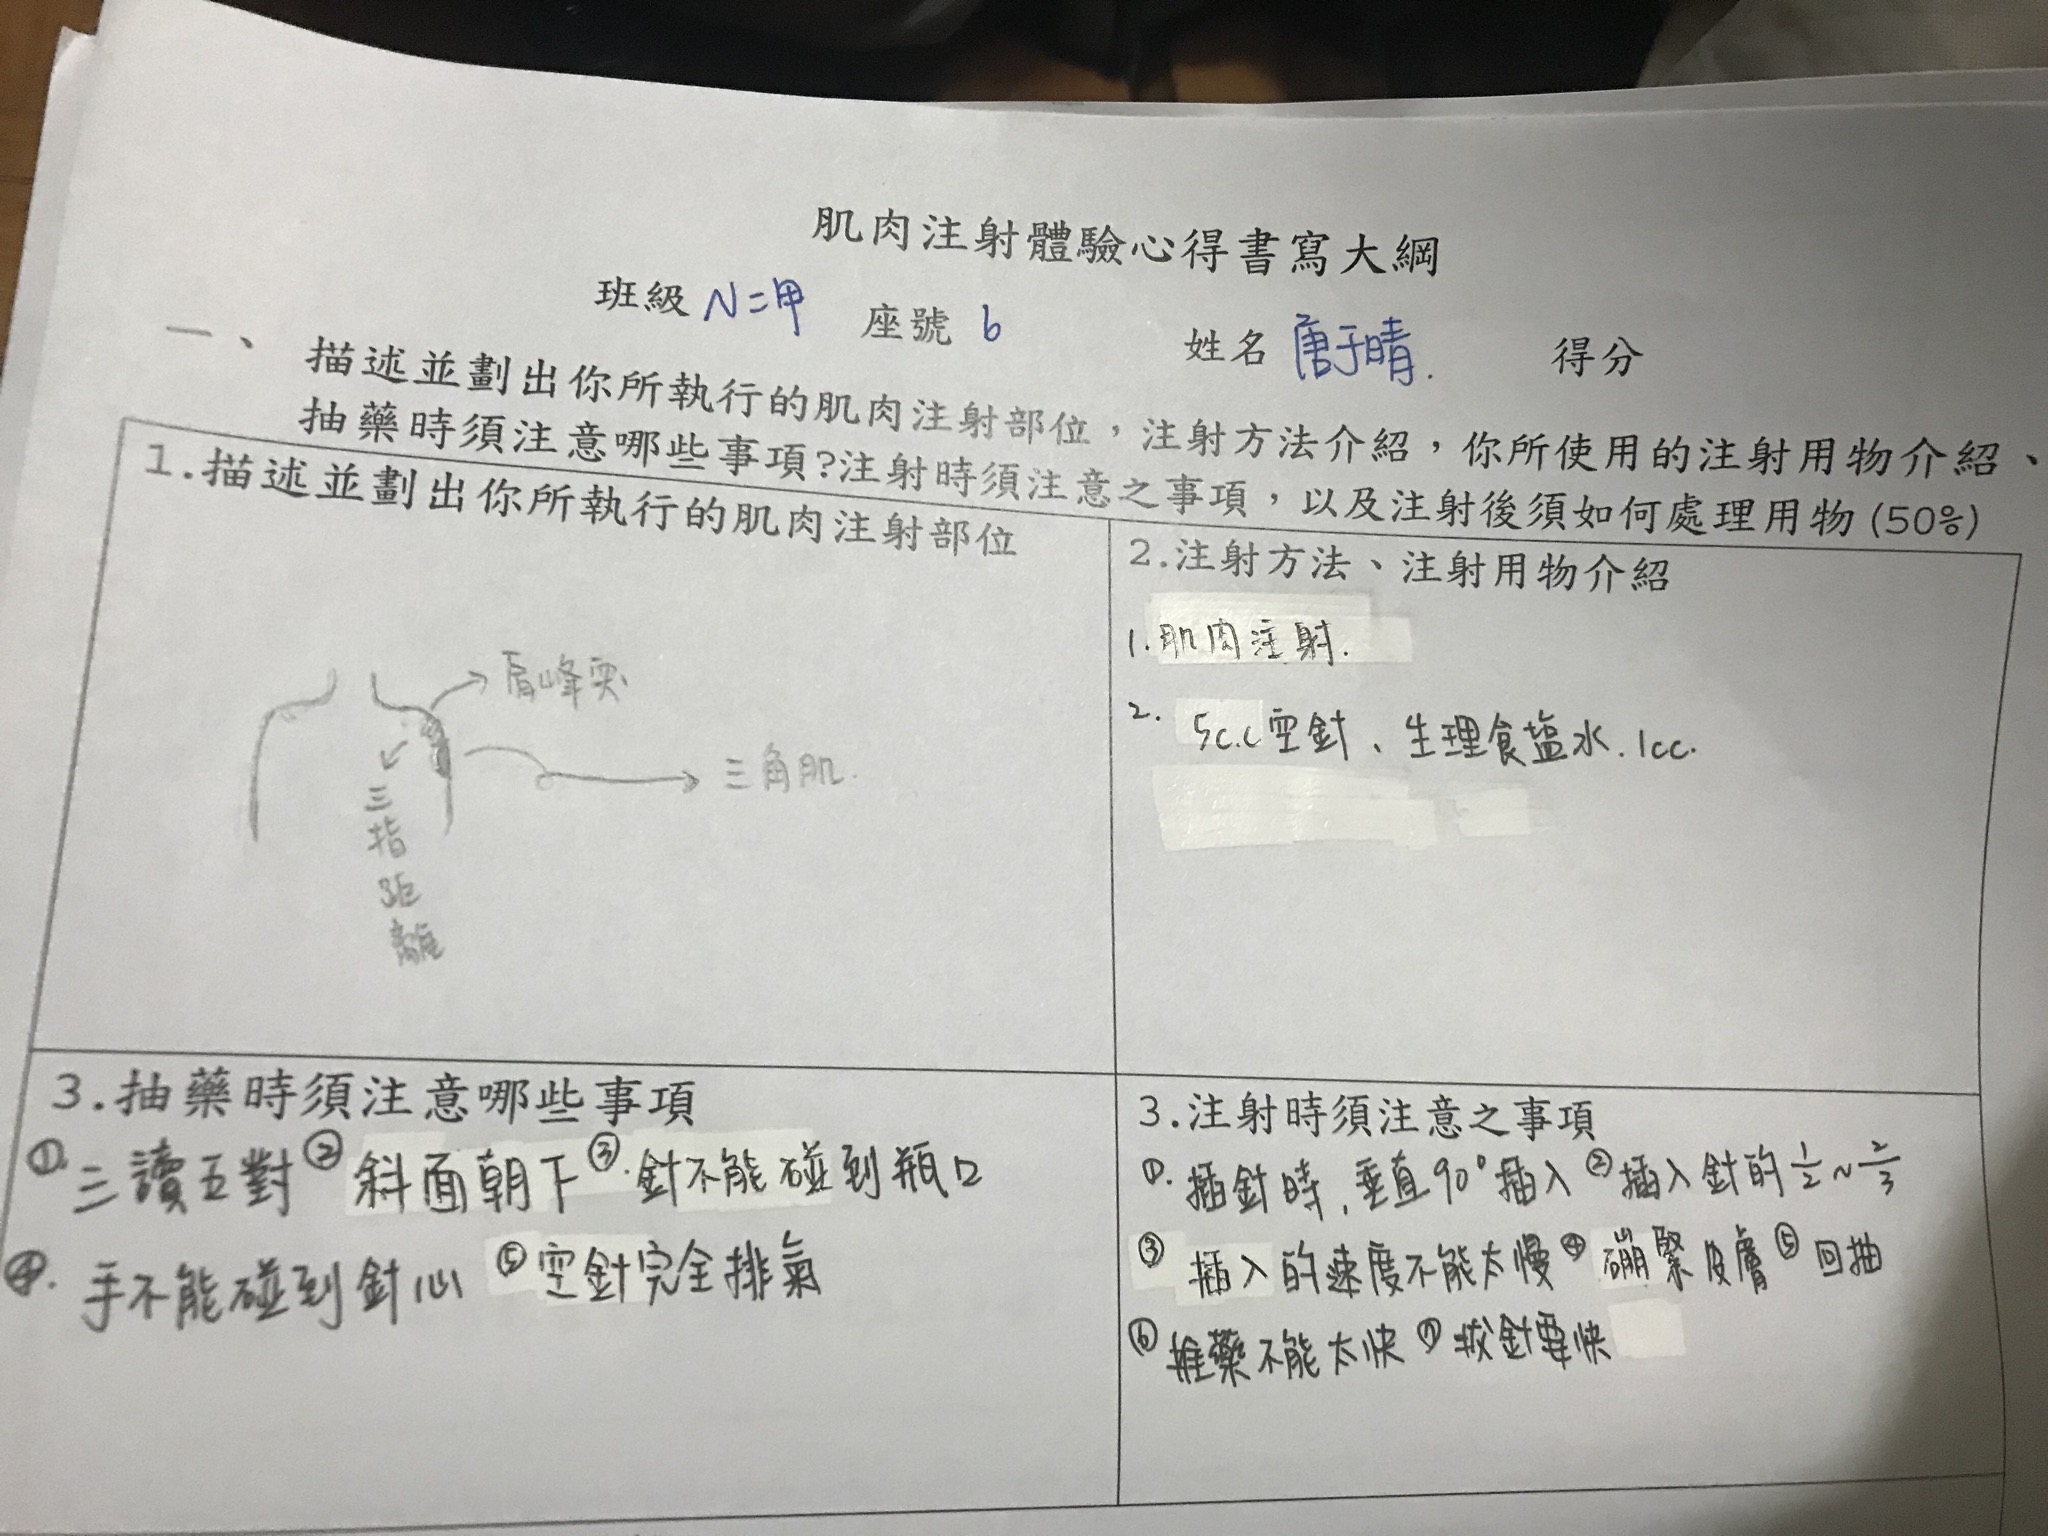 肌肉注射體驗心得書寫大綱
班級 N二甲 座號 6 姓名 唐于晴. 得分
一、描述並劃出你所執行的肌肉注射部位，注射方法介紹，你所使用的注射用物介紹、
抽藥時須注意哪些事項?注射時須注意之事項，以及注射後須如何處理用物(50%)
1.描述並劃出你所執行的肌肉注射部位
肩峰突
三角肌.
三指距離
2.注射方法、注射用物介紹
1.肌肉注射.
2. 5c.c空針、生理食鹽水.1cc.
3.抽藥時須注意哪些事項
①.三讀五對②斜面朝下③.針不能碰到瓶口
④.手不能碰到針心 ⑤空針完全排氣
3.注射時須注意之事項
①.插針時,垂直90°插入②插入針的1/2~2/3
③插入的速度不能太慢④繃緊皮膚⑤回抽
⑥推藥不能太快⑦拔針要快